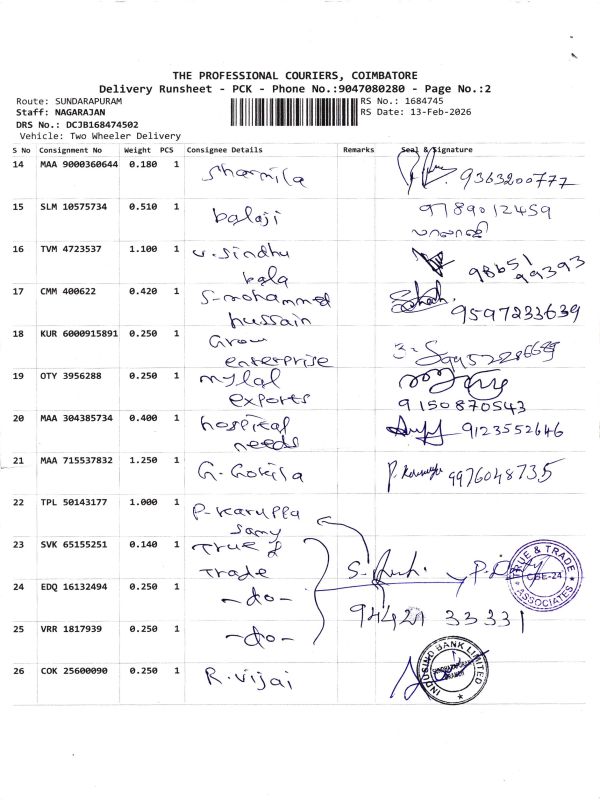 THE PROFESSIONAL COURIERS, COIMBATORE
Delivery Runsheet - PCK - Phone No.:9047080280 - Page No.:2
Route: SUNDARAPURAM
RS No.: 1684745
Staff: NAGARAJAN
RS Date: 13-Feb-2026
DRS No.: DCJB168474502
Vehicle: Two Wheeler Delivery
S No Consignment No Weight PCS Consignee Details Remarks Seal & Signature
14 MAA 9000360644 0.180 1 Sharmila 9363200777
15 SLM 10575734 0.510 1 balaji 9789012459
பாலாஜி
16 TVM 4723537 1.100 1 v.sindhu
bala
98651
99393
17 CMM 400622 0.420 1 S-mohammed
hussain
9597233639
18 KUR 6000915891 0.250 1 Grow
enterprise
19 OTY 3956288 0.250 1 mylal
exports
9150870543
20 MAA 304385734 0.400 1 hospital
needs
9123552646
21 MAA 715537832 1.250 1 G. Gokila 9976048735
22 TPL 50143177 1.000 1 P-karuppa
samy
23 SVK 65155251 0.140 1 True &
Trade
TRUE & TRADE
CBE-24
ASSOCIATES
24 EDQ 16132494 0.250 1 -do-
94421 33331
25 VRR 1817939 0.250 1 -do-
26 COK 25600090 0.250 1 R.vijai
INDUSIND BANK LIMITED
SUNDARAPURAM
BRANCH